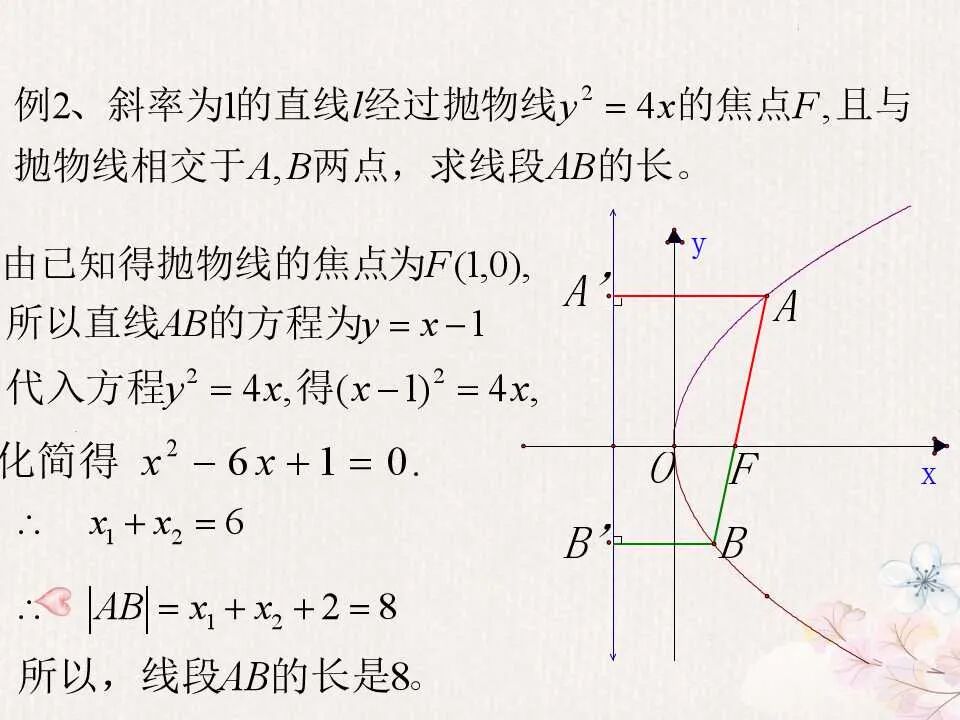 例2、斜率为1的直线l经过抛物线y² = 4x的焦点F,且与
抛物线相交于A,B两点，求线段AB的长。
由已知得抛物线的焦点为F(1,0),
所以直线AB的方程为y = x − 1
代入方程y² = 4x,得(x − 1)² = 4x,
化简得 x² − 6x + 1 = 0.
∴ x₁ + x₂ = 6
∴ |AB| = x₁ + x₂ + 2 = 8
所以，线段AB的长是8。
y
A′
A
O
F
x
B′
B